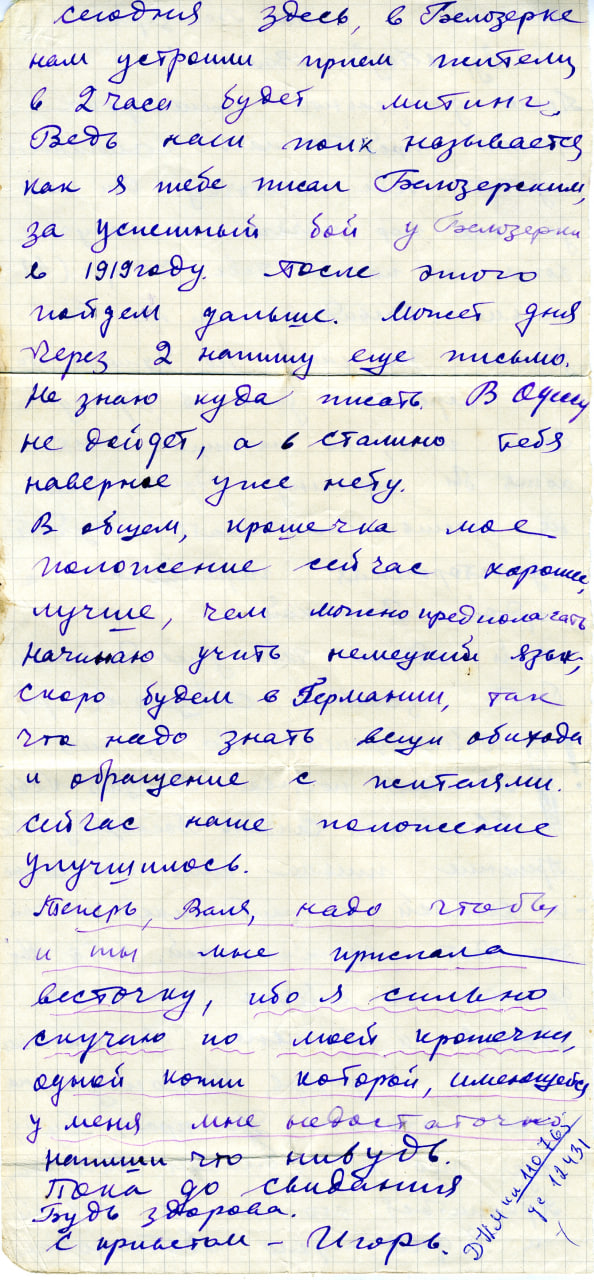 сегодня здесь, в Белозерке
нам устроили прием жители,
в 2 часа будет митинг.
Ведь наш полк называется
как я тебе писал Белозерским,
за успешный бой у Белозерки
в 1919 году. После этого
пойдем дальше. Может дня
через 2 напишу еще письмо.
Не знаю куда писать. В Одессу
не дойдет, а в Сталино тебя
наверное уже нету.
В общем, крошечка мое
положение сейчас хорошее,
лучше, чем можно предполагать
начинаю учить немецкий язык,
скоро будем в Германии, так
что надо знать вещи обихода
и обращение с жителями.
Сейчас наше положение
улучшилось.
Теперь, Валя, надо чтобы
и ты мне прислала
весточку, ибо я сильно
скучаю по моей крошечки,
одной копии которой, имеющейся
у меня мне недостаточно.
Напиши что нибудь.
Пока до свидания
Будь здорова.
С приветом – Игорь.
КП 110765
12431